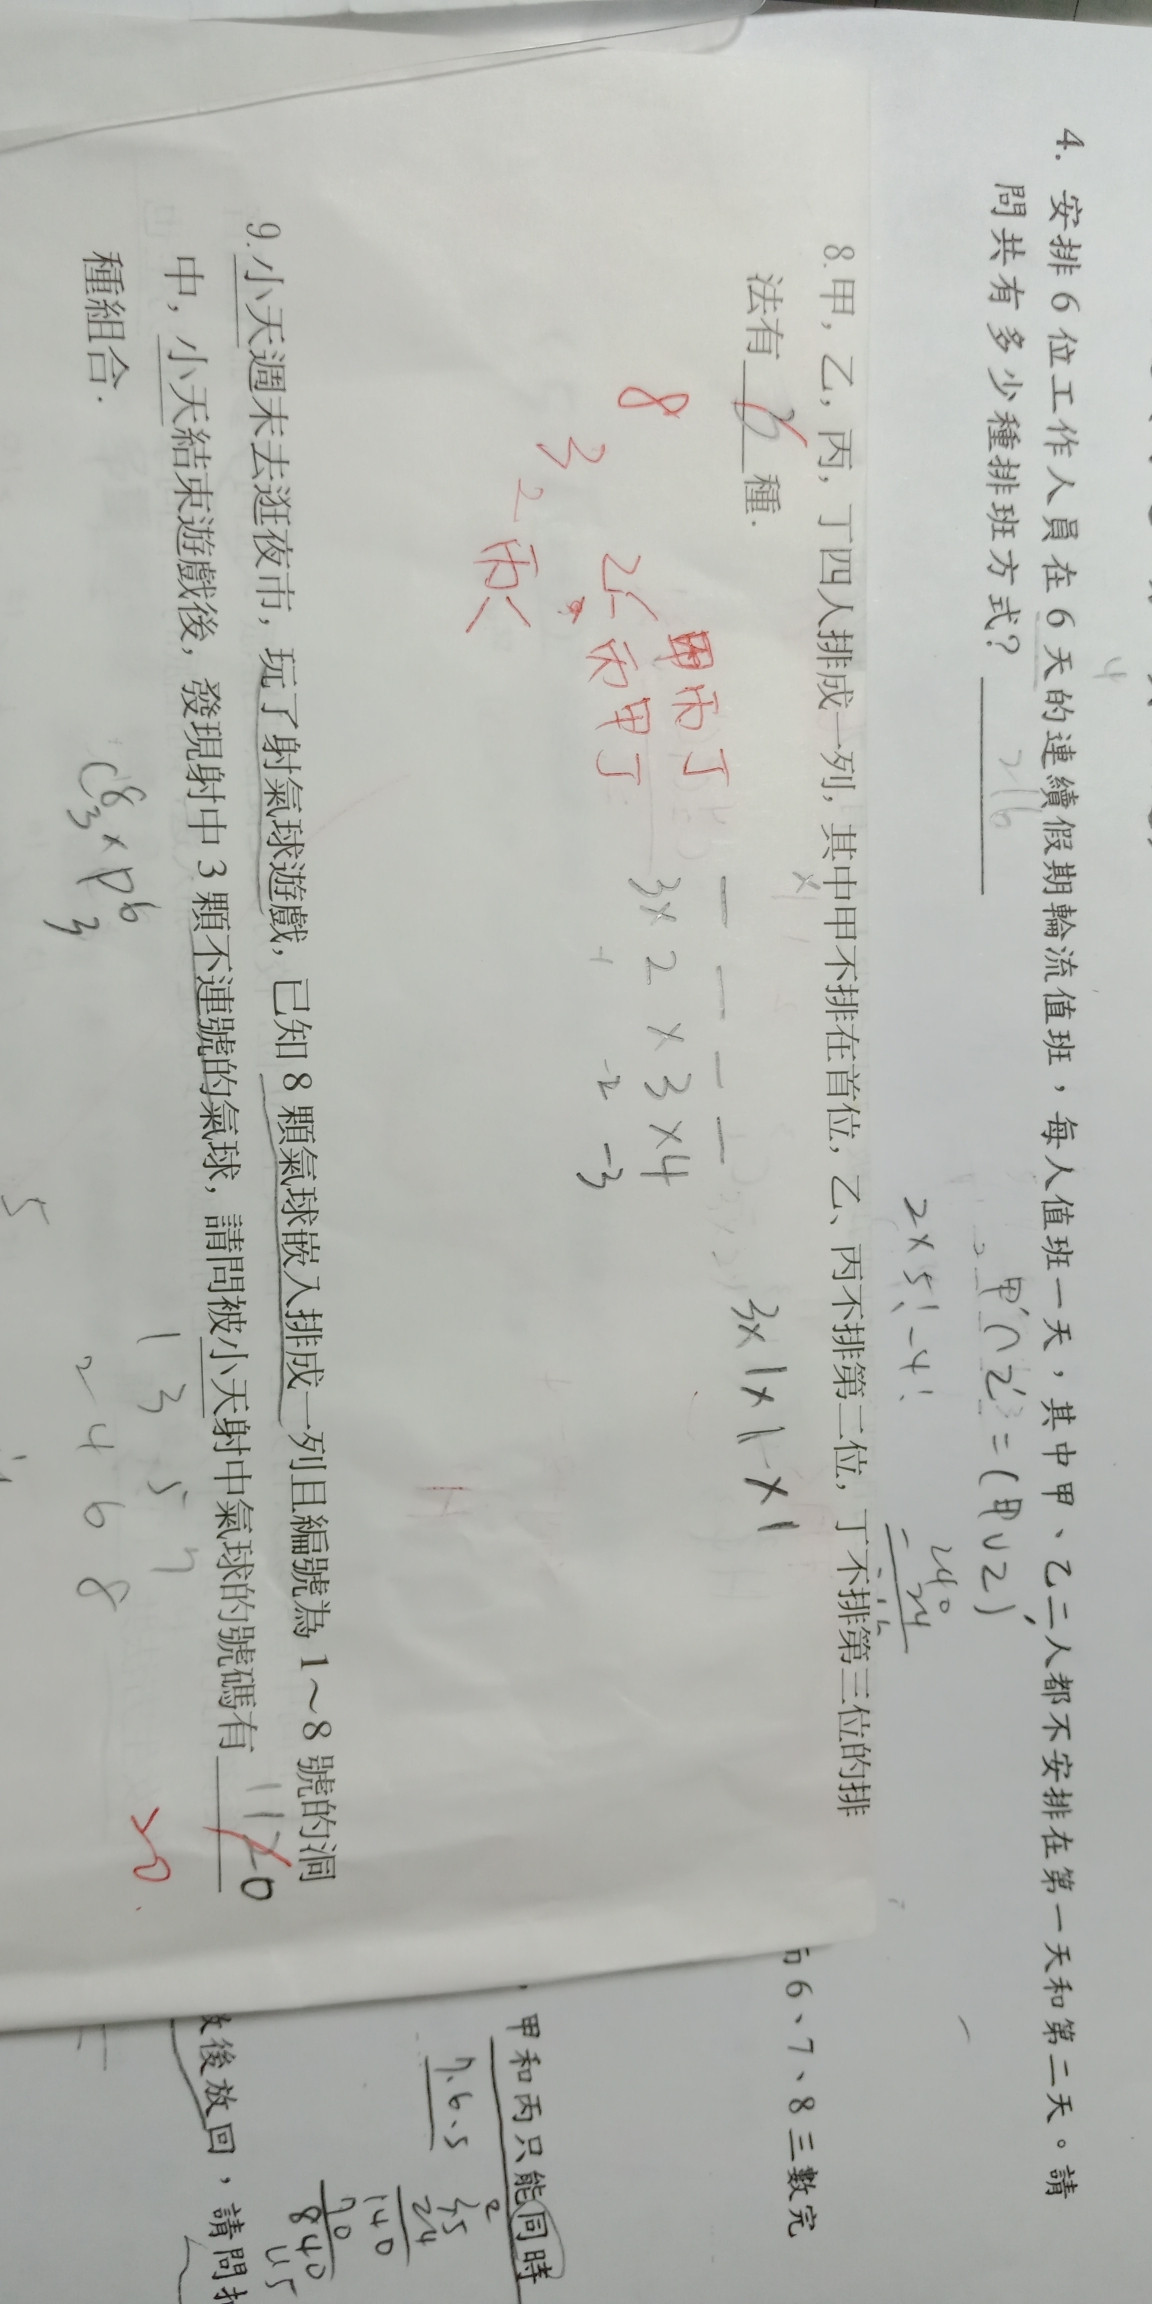 4. 安排 6 位工作人員在 6 天的連續假期輪流值班，每人值班一天，其中甲、乙二人都不安排在第一天和第二天。請
問共有多少種排班方式？
216
甲'∩乙'=(甲∪乙)'
2×5!-4!
240
24
8.甲，乙，丙，丁四人排成一列，其中甲不排在首位，乙、丙不排第二位，丁不排第三位的排
法有 6 種.
8
3×1×1×1
甲丙丁
3×2×3×4
-2 -3
乙 丙甲丁
3
2
丙
9.小天週末去逛夜市，玩了射氣球遊戲，已知 8 顆氣球嵌入排成一列且編號為 1～8 號的洞
中，小天結束遊戲後，發現射中 3 顆不連號的氣球，請問被小天射中氣球的號碼有 1120
種組合.
20
1 3 5 7
2 4 6 8
C⁸₃×P⁶₃
5
6、7、8 三數完
甲和丙只能同時
7.6.5
2
35
24
140
70
840
後放回，請問